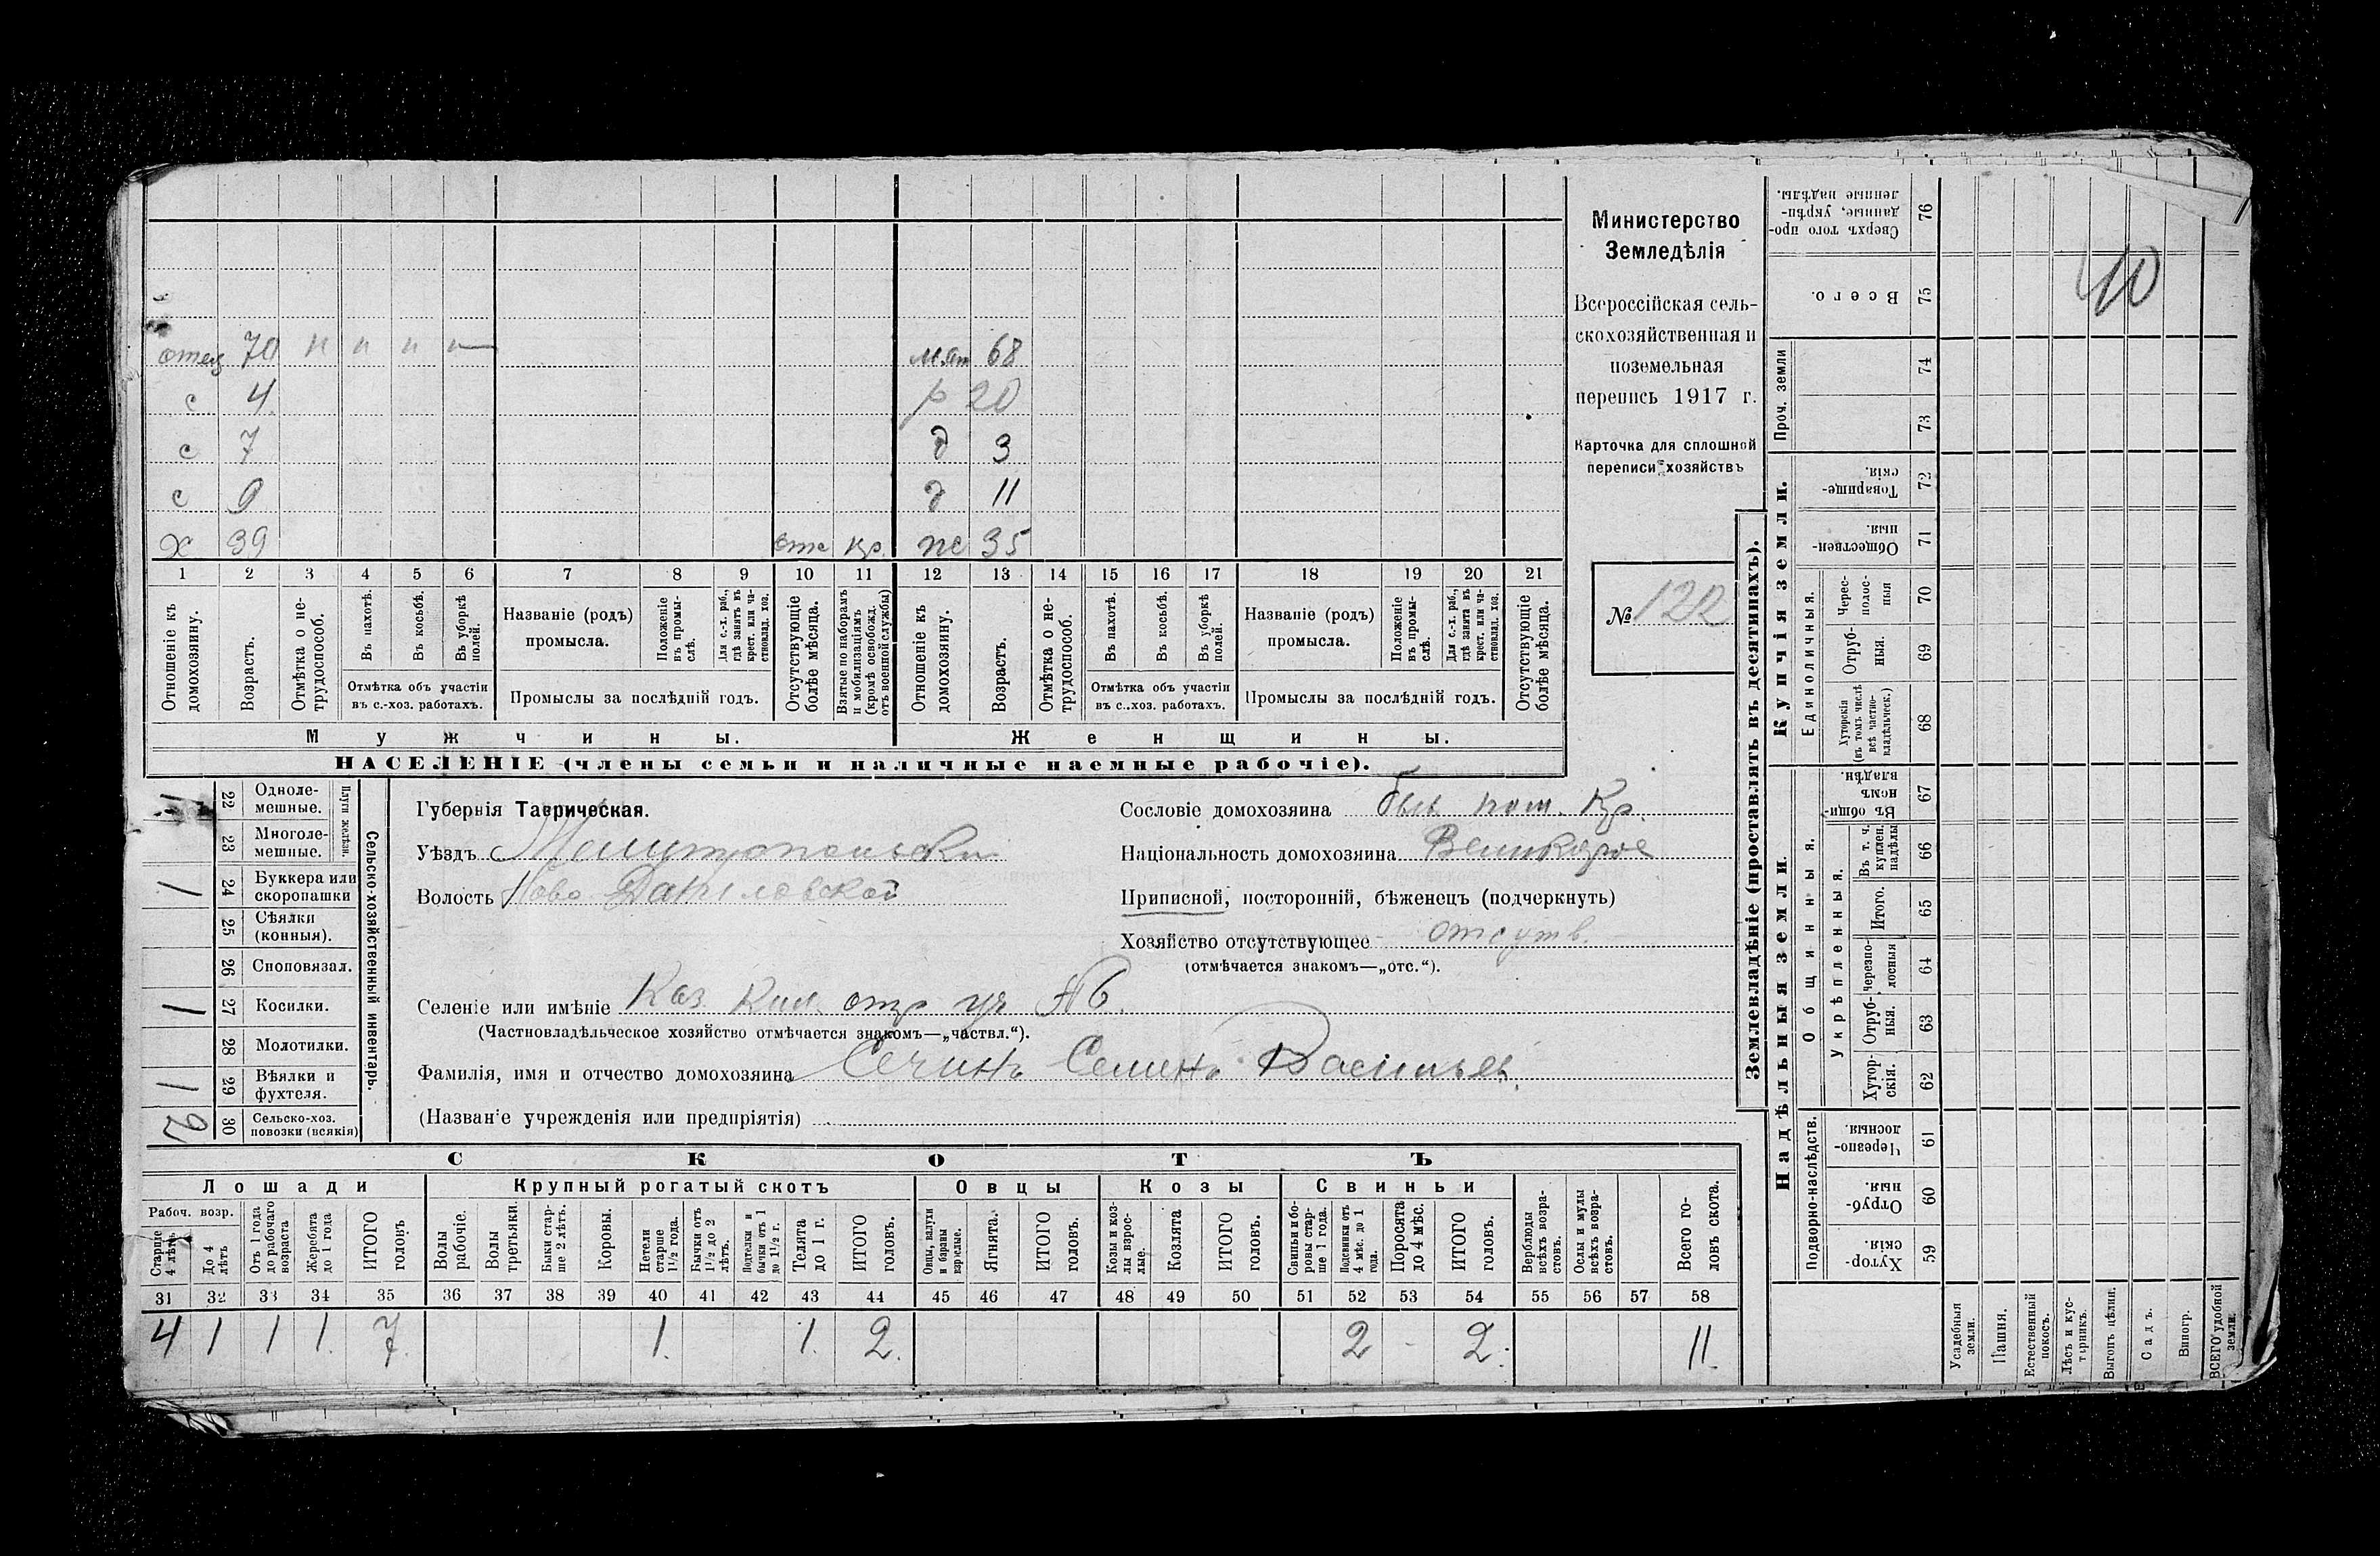 отец 70 н н н н мат 68
с 4 р 20
с 7 д 3
с 9 д 11
Х 39 отс кр. же 35
1 2 3 4 5 6 7 8 9 10 11 12 13 14 15 16 17 18 19 20 21
Отношеніе къ домохозяину.
Возрастъ.
Отмѣтка о не-трудоспособ.
Въ пахотѣ.
Въ косьбѣ.
Въ уборкѣ полей.
Отмѣтка объ участіи
въ с.-хоз. работахъ.
Названіе (родъ)
промысла.
Положеніе въ промы-слѣ.
Для с.-х. раб., гдѣ занятъ въ крест. или ча-стновлад. хоз.
Промыслы за послѣдній годъ.
Отсутствующіе болѣе мѣсяца.
Взятые по наборамъ и мобилизаціямъ (кромѣ освобожд. отъ военной службы)
Отношеніе къ домохозяину.
Возрастъ.
Отмѣтка о не-трудоспособ.
Въ пахотѣ.
Въ косьбѣ.
Въ уборкѣ полей.
Отмѣтка объ участіи
въ с.-хоз. работахъ.
Названіе (родъ)
промысла.
Положеніе въ промы-слѣ.
Для с.-х. раб., гдѣ занята въ крест. или ча-стновлад. хоз.
Промыслы за послѣдній годъ.
Отсутствующіе болѣе мѣсяца.
Мужчины. Женщины.
НАСЕЛЕНІЕ (члены семьи и наличные наемные рабочіе).
Министерство
Земледѣлія
Всероссійская сель-
скохозяйственная и
поземельная
перепись 1917 г.
Карточка для сплошной
переписи хозяйствъ
№ 122
22 Одноле-мешные.
23 Многоле-мешные.
Плуги желѣзн.
24 Буккера или скоропашки 1
25 Сѣялки (конныя).
26 Сноповязал.
27 Косилки. 1
28 Молотилки.
29 Вѣялки и фухтеля. 1
30 Сельско-хоз. повозки (всякія) 2
Сельско-хозяйственный инвентарь.
Губернія Таврическая.
Уѣздъ Мелитопольскій
Волость Ново Даниловской
Сословіе домохозяина быв. пом. Кр.
Національность домохозяина Великорос
Приписной, посторонній, бѣженецъ (подчеркнуть)
Хозяйство отсутствующее отсутв.
(отмѣчается знакомъ—„отс.“).
Селеніе или имѣніе Каз. отр уч №6.
(Частновладѣльческое хозяйство отмѣчается знакомъ—„частвл.“).
Фамилія, имя и отчество домохозяина Сечинъ Семинъ Васильев.
(Названіе учрежденія или предпріятія)
СКОТЪ
Лошади Крупный рогатый скотъ Овцы Козы Свиньи
Рабоч. возр.
Старше 4 лѣтъ
До 4 лѣтъ
Отъ 1 года до рабочаго возраста
Жеребята до 1 года
ИТОГО головъ
Волы рабочіе.
Волы третьяки.
Быки стар-ше 2 лѣтъ.
Коровы.
Нетели старше 1½ года.
Бычки отъ 1½ до 2 лѣтъ.
Подтелки и бычки отъ 1 до 1½ г.
Телята до 1 г.
ИТОГО головъ.
Овцы, валухи и бараны взрослые.
Ягнята.
ИТОГО головъ.
Козы и коз-лы взрос-лые.
Козлята
ИТОГО головъ.
Свиньи и бо-ровы стар-ше 1 года.
Подсвинки отъ 4 мѣс. до 1 года.
Поросята до 4 мѣс.
ИТОГО головъ.
Верблюды всѣхъ возра-стовъ.
Ослы и мулы всѣхъ возра-стовъ.
Всего го-ловъ скота.
31 32 33 34 35 36 37 38 39 40 41 42 43 44 45 46 47 48 49 50 51 52 53 54 55 56 57 58
4 1 1 1. 7. 1. 1. 2. 2 - 2. 11.
Землевладѣніе (проставлять въ десятинахъ).
Надѣльныя земли. Купчія земли. Проч. земли
Подворно-наслѣдств.
Общинныя.
Укрѣпленныя.
Единоличныя.
Сверхъ того про-данные, укрѣп-ленные надѣлы. 76
Всего. 75
74
73
Товарище-скія. 72
Обществен-ныя. 71
Черес-полос-ныя 70
Отруб-ныя. 69
Хуторскія (въ томъ числѣ всѣ частно-владѣльческ.) 68
Въ общин-номъ владѣн. 67
Въ т. ч. куплен. надѣлы 66
Итого. 65
Черезпо-лосныя 64
Отруб-ныя. 63
Хутор-скія. 62
Черезпо-лосныя. 61
Отруб-ныя. 60
Хутор-скія. 59
Усадебныя земли.
Пашня.
Естественный покосъ.
Лѣсъ и кус-тарникъ.
Выгонъ цѣлин.
Садъ.
Виногр.
ВСЕГО удобной земли.
40